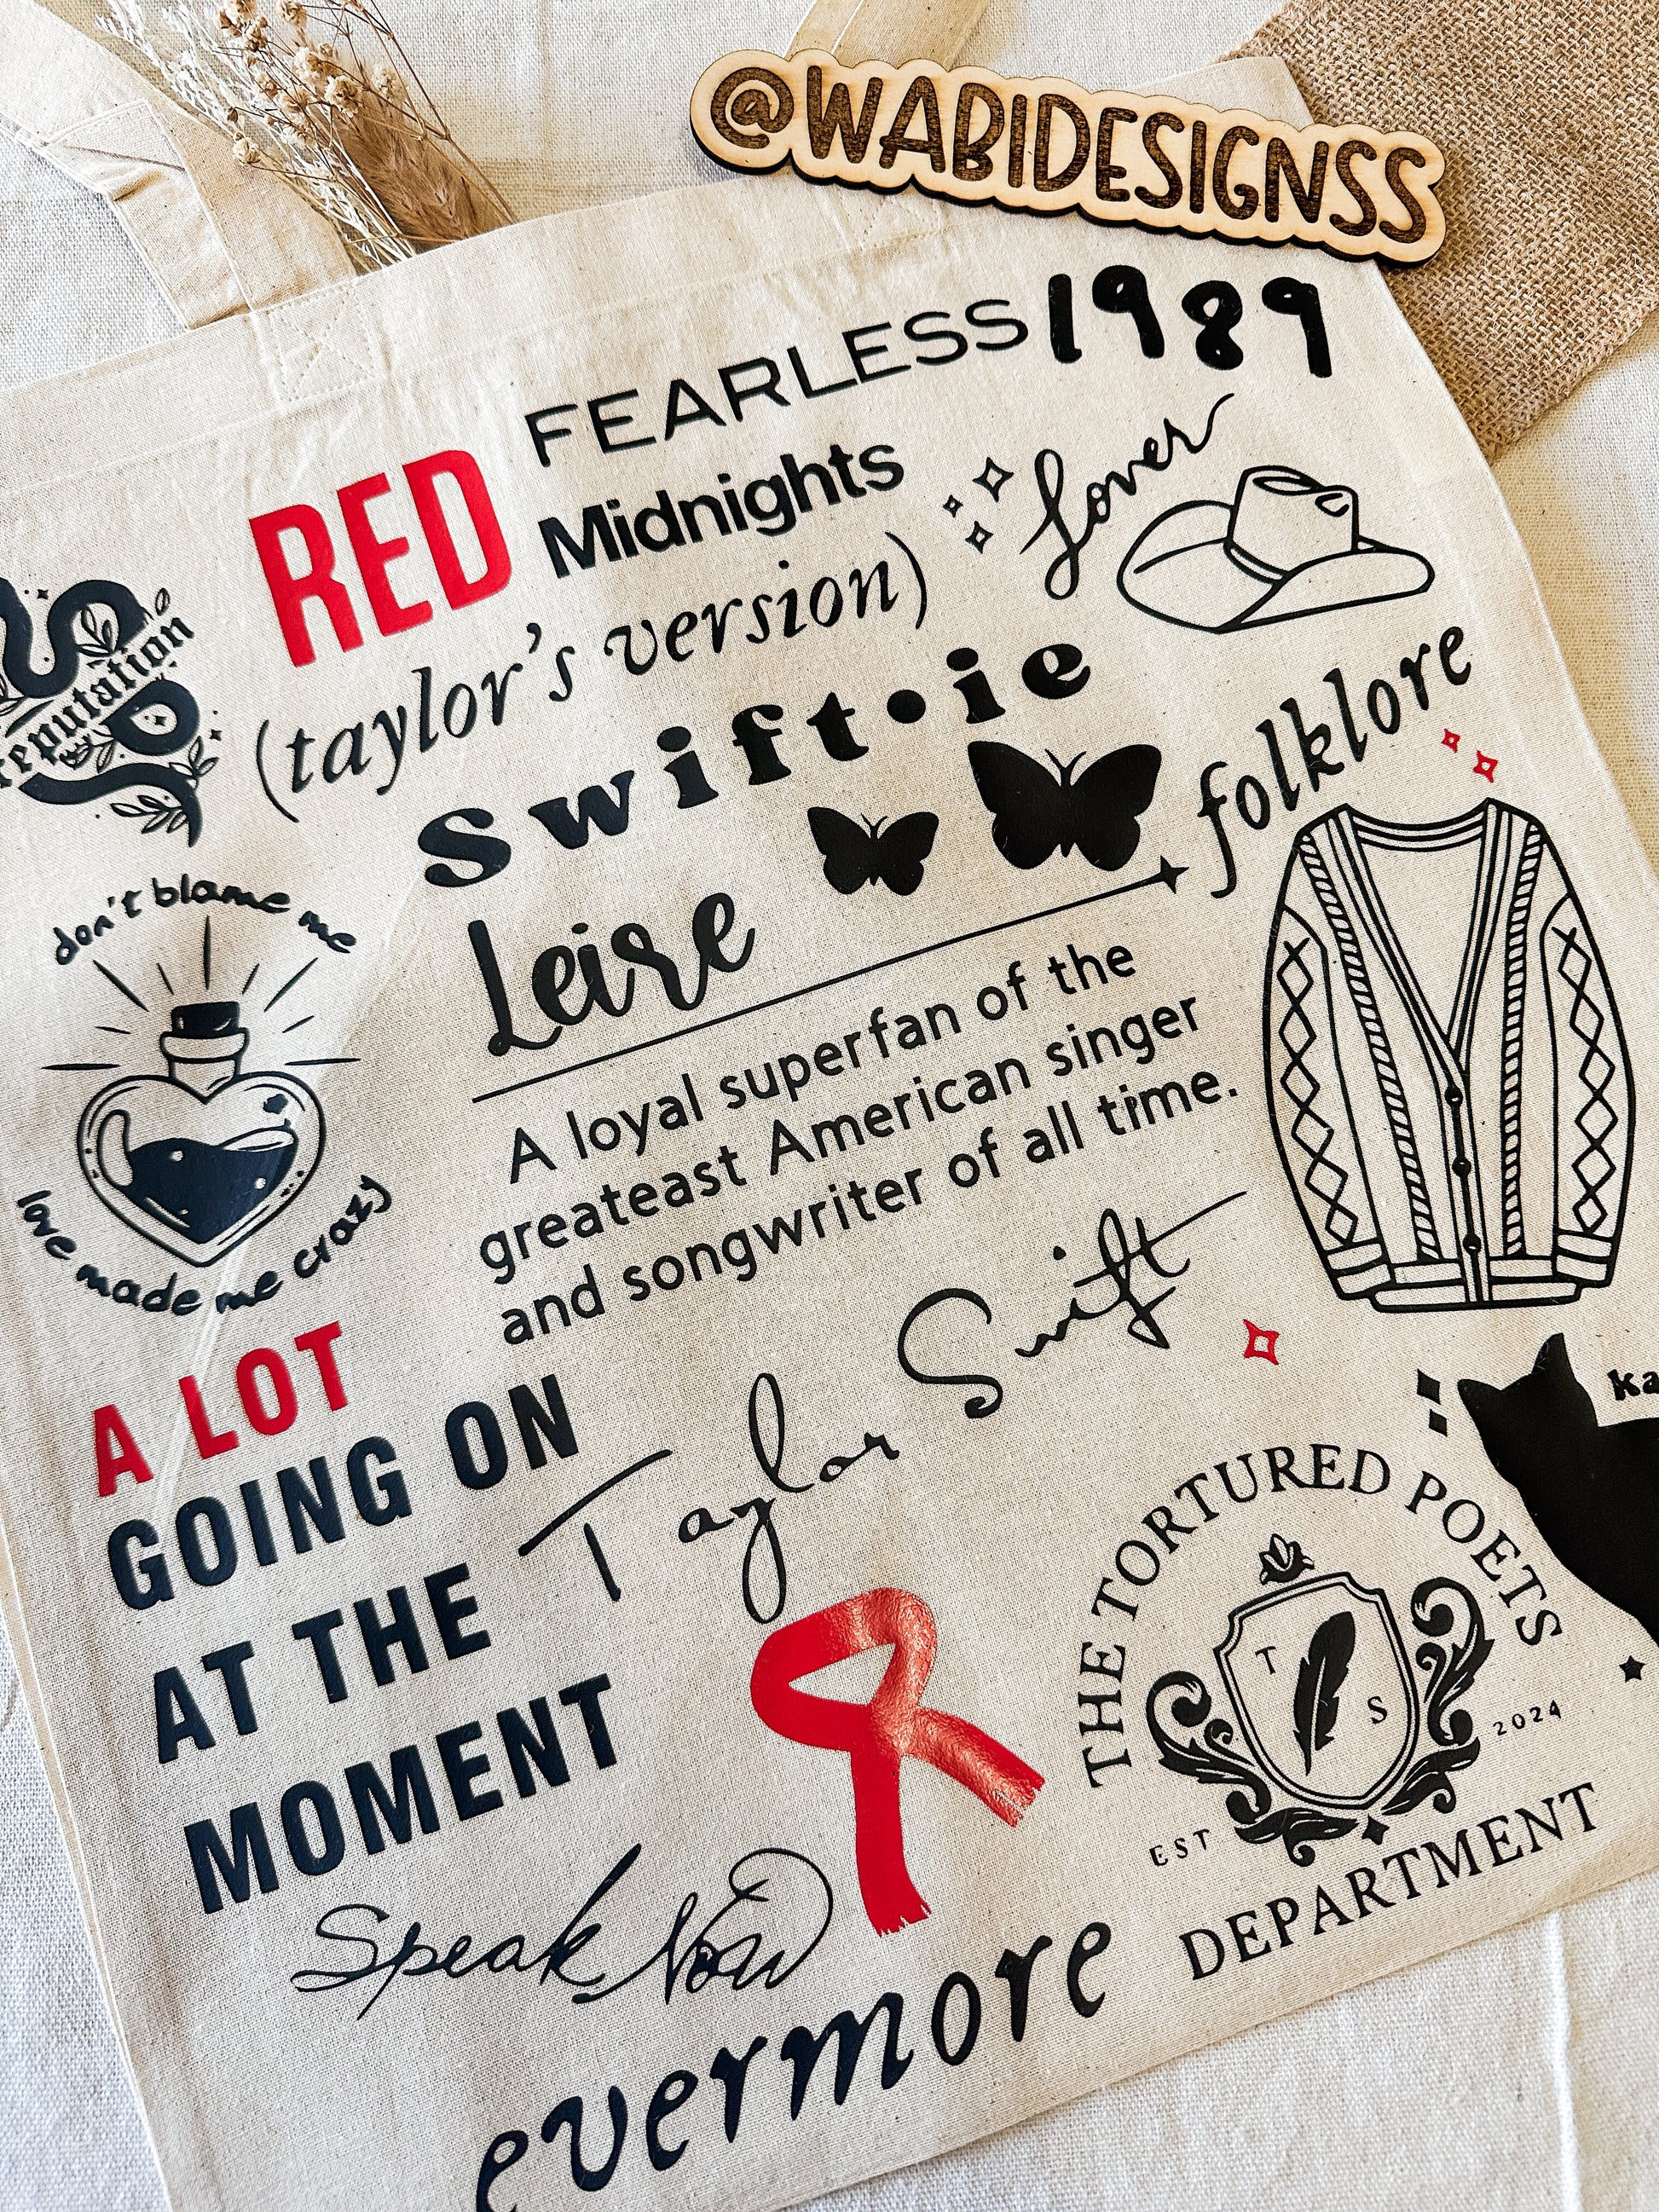 @WABIDESIGNSS
FEARLESS
1989
RED
Midnights
lover
(taylor's version)
reputation
swift•ie
folklore
don't blame me
love made me crazy
Leire
A loyal superfan of the
greateast American singer
and songwriter of all time.
Taylor Swift
A LOT
GOING ON
AT THE
MOMENT
THE TORTURED POETS
T
S
EST
2024
DEPARTMENT
Speak Now
evermore